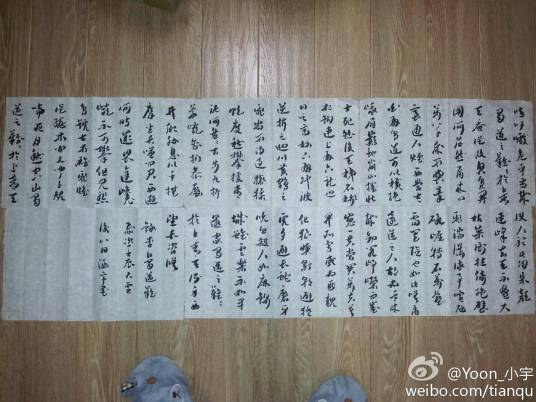 噫吁嚱危乎高哉
蜀道之难难于上青
天蚕丛及鱼凫
开国何茫然尔来四
万八千岁不与秦
塞通人烟西当太
白有鸟道可以横绝
峨眉巅地崩山摧壮
士死然后天梯石栈
相钩连上有六龙回
日之高标下有冲波
逆折之回川黄鹤之
飞尚不得过猿猱
欲度愁攀援青
泥何盘盘百步九折
萦岩峦扪参历
井仰胁息以手抚
膺坐长叹问君西游
何时还畏途巉
岩不可攀但见悲
鸟号古木雄飞雌
从绕林间又闻子规
啼夜月愁空山蜀
道之难难于上青天
使人听此凋朱颜
连峰去天不盈尺
枯松倒挂倚绝壁
飞湍瀑流争喧豗
砯崖转石万壑
雷其险也如此嗟尔
远道之人胡为乎来
哉剑阁峥嵘而崔
嵬一夫当关万夫莫
开所守或匪亲
化为狼与豺朝避猛
虎夕避长蛇磨牙
吮血杀人如麻锦
城虽云乐不如早
还家蜀道之难难
于上青天侧身西
望长咨嗟
录李白蜀道难
@Yoon_小宇
weibo.com/tianqu